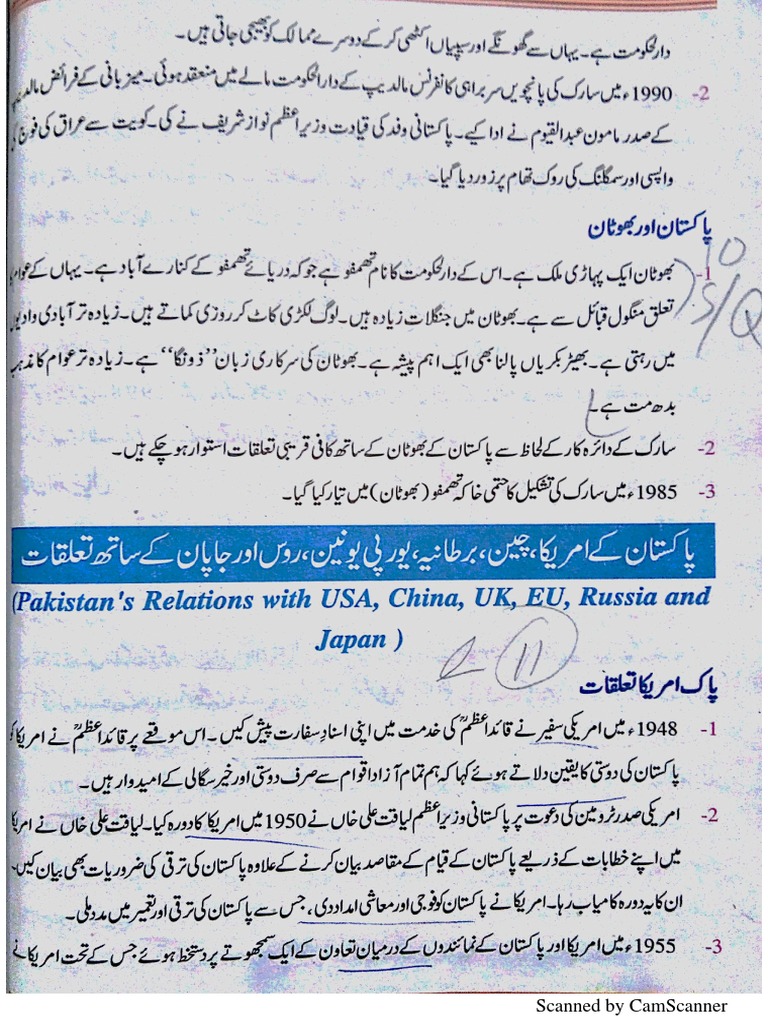 دارالحکومت ہے۔ یہاں سے گھونگے اور سیپیاں اکٹھی کر کے دوسرے ممالک کو بھیجی جاتی ہیں۔
2- 1990ء میں سارک کی پانچویں سربراہی کانفرنس مالدیپ کے دارالحکومت مالے میں منعقد ہوئی۔ میزبانی کے فرائض
کے صدر مامون عبدالقیوم نے ادا کیے۔ پاکستانی وفد کی قیادت وزیراعظم نواز شریف نے کی۔ کویت سے عراق کی فوج
واپسی اور سمگلنگ کی روک تھام پر زور دیا گیا۔
پاکستان اور بھوٹان
10
1- بھوٹان ایک پہاڑی ملک ہے۔ اس کے دارالحکومت کا نام تھمفو ہے جو کہ دریائے تھمفو کے کنارے آباد ہے۔ یہاں کے عوام
S/Q
تعلق منگول قبائل سے ہے۔ بھوٹان میں جنگلات زیادہ ہیں۔ لوگ لکڑی کاٹ کر روزی کماتے ہیں۔ زیادہ تر آبادی
میں رہتی ہے۔ بھیڑ بکریاں پالنا بھی ایک اہم پیشہ ہے۔ بھوٹان کی سرکاری زبان ”ذونگا“ ہے۔ زیادہ تر عوام کا
بدھ مت ہے۔
2- سارک کے دائرہ کار کے لحاظ سے پاکستان کے بھوٹان کے ساتھ کافی قریبی تعلقات استوار ہو چکے ہیں۔
3- 1985ء میں سارک کی تشکیل کا حتمی خاکہ تھمفو (بھوٹان) میں تیار کیا گیا۔
پاکستان کے امریکا، چین، برطانیہ، یورپی یونین، روس اور جاپان کے ساتھ تعلقات
(Pakistan's Relations with USA, China, UK, EU, Russia and
Japan )
11
پاک امریکا تعلقات
1- 1948ء میں امریکی سفیر نے قائداعظمؒ کی خدمت میں اپنی اسنادِ سفارت پیش کیں۔ اس موقعے پر قائداعظمؒ نے امریکا
پاکستان کی دوستی کا یقین دلاتے ہوئے کہا کہ ہم تمام آزاد اقوام سے صرف دوستی اور خیرسگالی کے امیدوار ہیں۔
2- امریکی صدر ٹرومین کی دعوت پر پاکستانی وزیراعظم لیاقت علی خاں نے 1950 میں امریکا کا دورہ کیا۔ لیاقت علی خاں نے
میں اپنے خطابات کے ذریعے پاکستان کے قیام کے مقاصد بیان کرنے کے علاوہ پاکستان کی ترقی کی ضروریات بھی بیان کیں۔
ان کا یہ دورہ کامیاب رہا۔ امریکا نے پاکستان کو فوجی اور معاشی امداد دی، جس سے پاکستان کی ترقی اور تعمیر میں مدد ملی۔
3- 1955ء میں امریکا اور پاکستان کے نمائندوں کے درمیان تعاون کے ایک سمجھوتے پر دستخط ہوئے جس کے تحت امریکا نے
Scanned by CamScanner